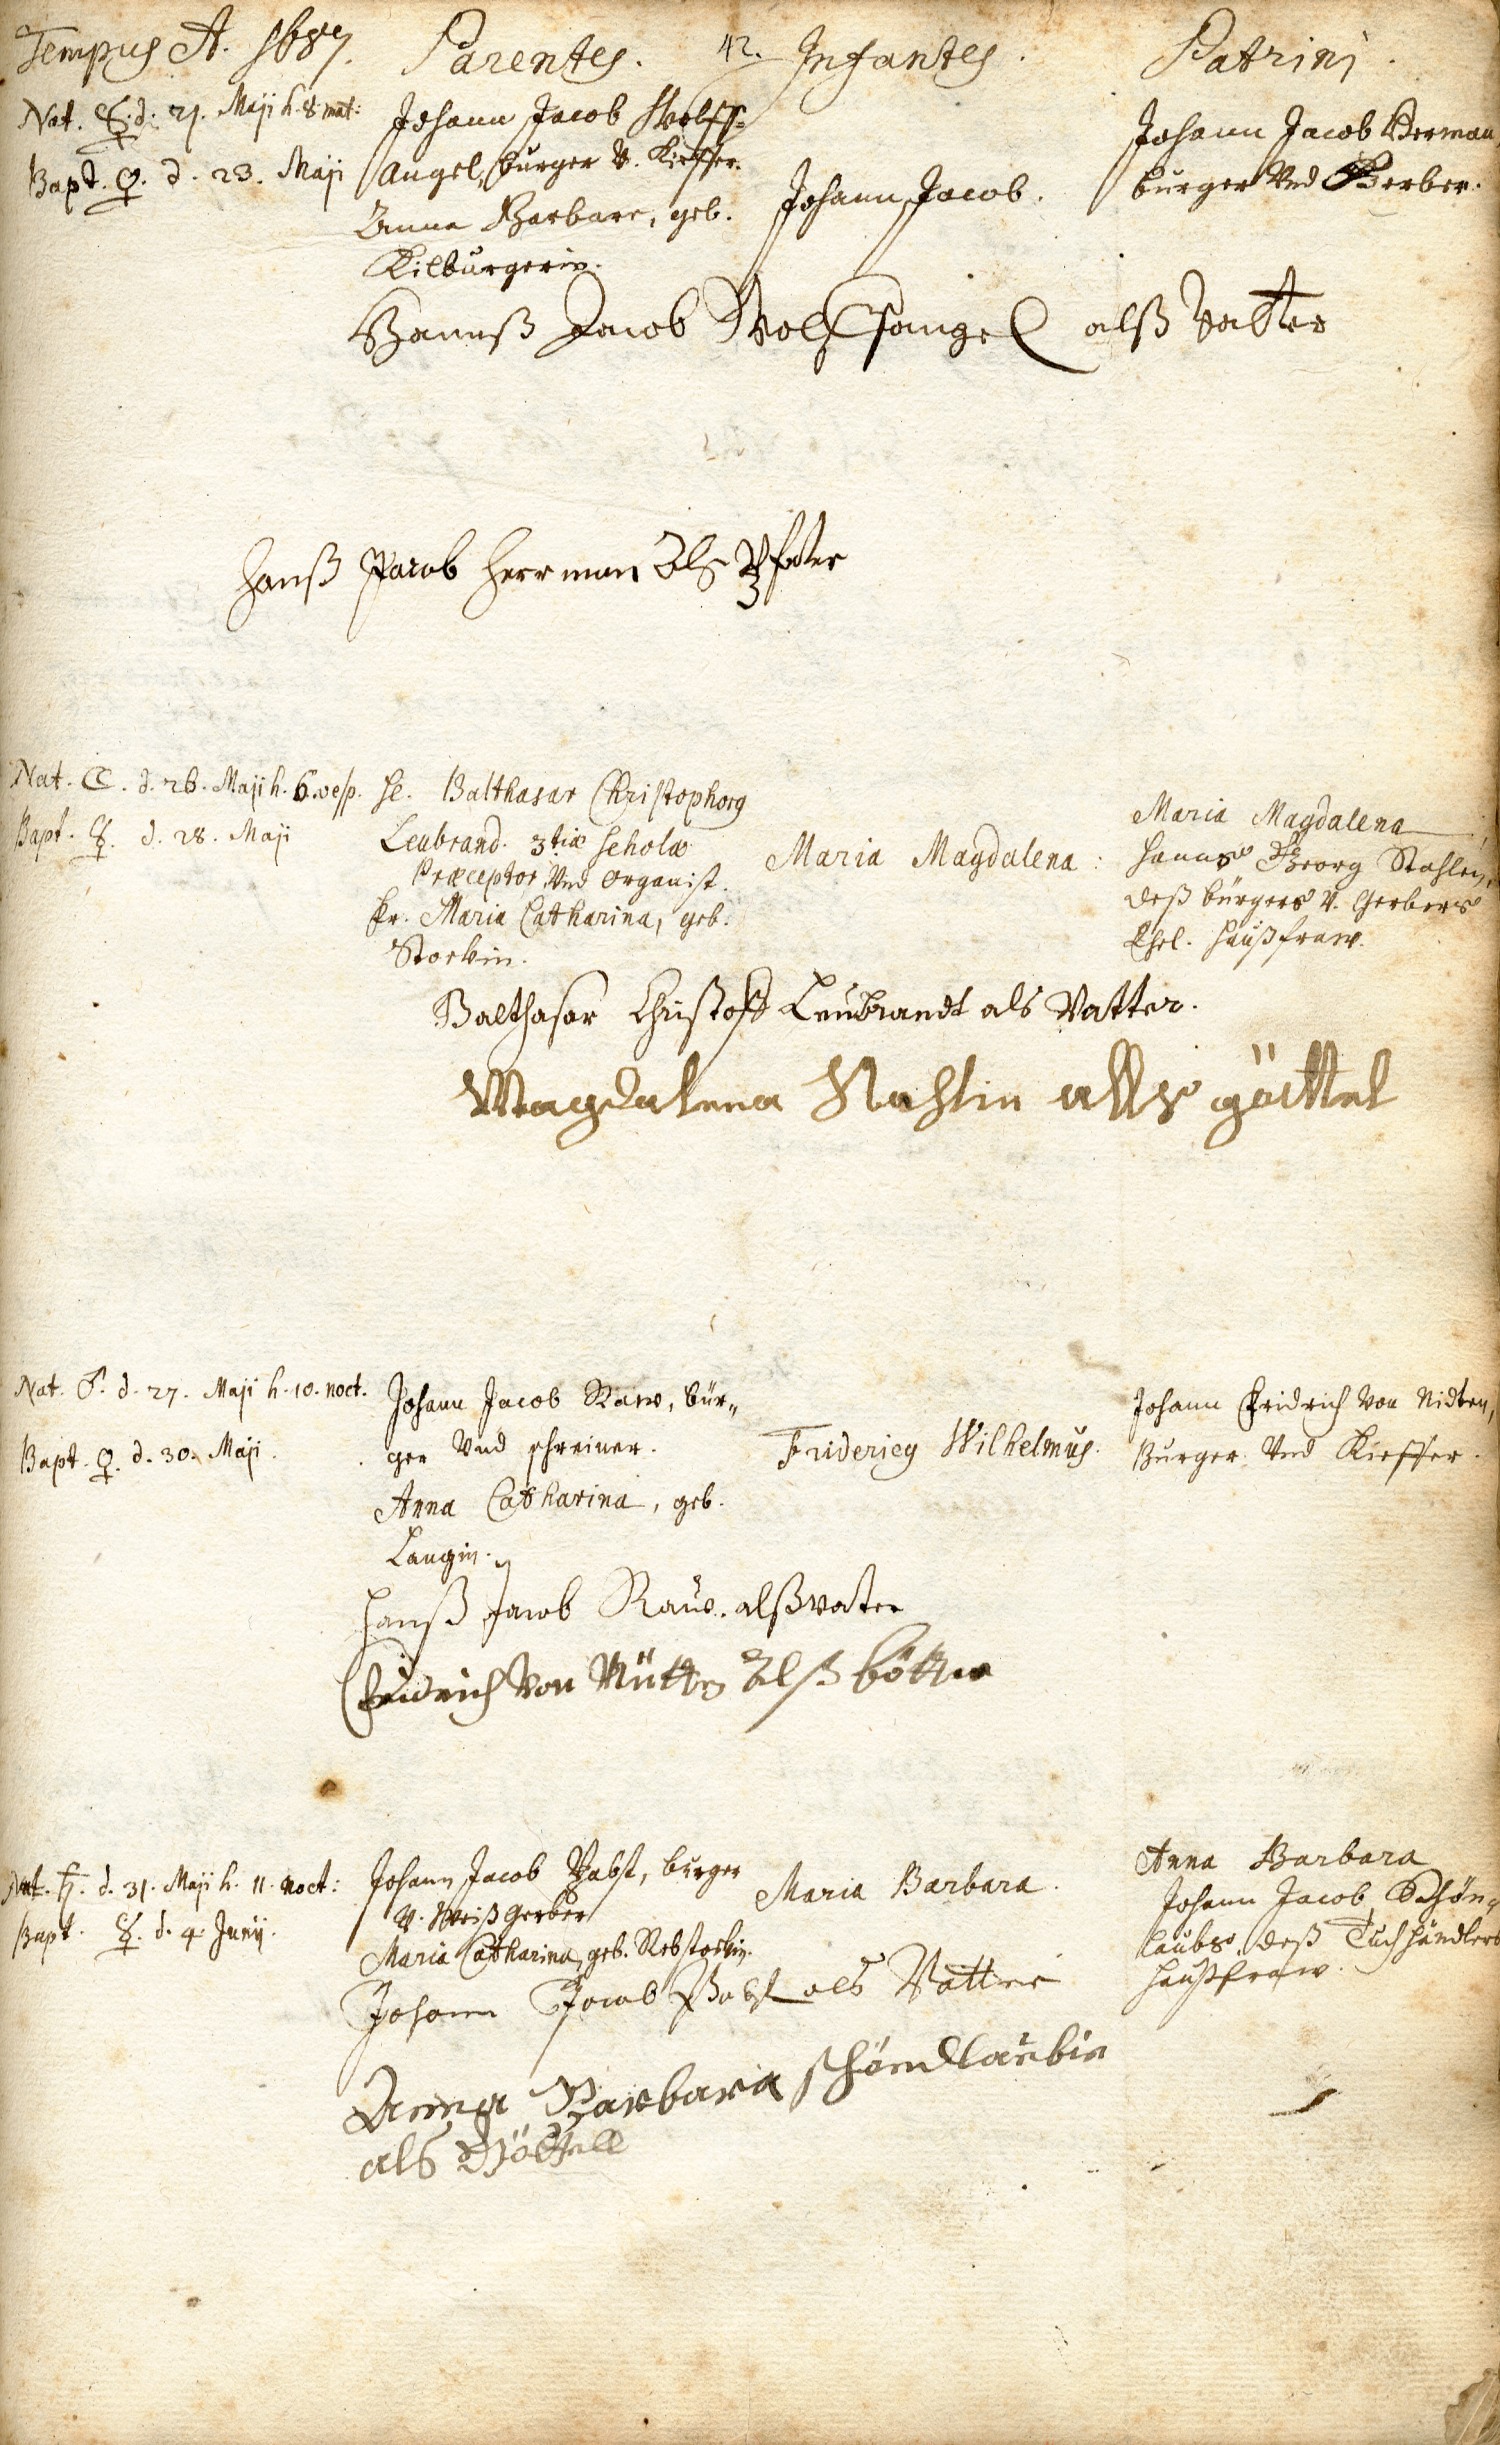 Tempus A. 1687. Parentes. 42. Infantes. Patrini.
Nat. ☿. d. 21. Maji h. 8 mat:
Bapt. ♀. d. 23. Maji
Johann Jacob Wolff=
angel, burger V. Kieffer.
Anna Barbara, geb.
Kilburgerin.
Johann Jacob.
Johann Jacob Herman,
burger Vnd Gerber.
Hannß Jacob Wolffangel alß Vatter
Hanß Jacob Herrman Als Pfater
Nat. ☾. d. 26. Maji h. 6. vesp.
Bapt. ☿. d. 28. Maji
H. Balthasar Christophorus
Leubrand. 3tiæ Scholæ
Præceptor Vnd Organist.
Fr. Maria Catharina, geb.
Storkin.
Maria Magdalena:
Maria Magdalena
Hannß Georg Stahlen,
deß bürgers V. Gerbers
Ehel. Haußfraw.
Balthasar Christoff Leubrandt als Vatter.
Magdalena Stahlin als göttel
Nat. ♂. d. 27. Maji h. 10. noct.
Bapt. ♀. d. 30. Maji.
Johann Jacob Raw, bür„
ger Vnd schreiner.
Anna Catharina, geb.
Langin.
Fridericus Wilhelmus.
Johann Fridrich Von Nidten,
Burger Vnd Kieffer.
Hanß Jacob Rauw. alß vater
Fridrich Von Nütten Alß götter
Nat. ♄. d. 31. Maji h. 11. noct:
Bapt. ☿. d. 4. Junij.
Johann Jacob Pabst, burger
V. Weißgerber
Maria Catharina, geb. Rebstockin.
Maria Barbara.
Anna Barbara
Johann Jacob Schön„
laubs, deß Tuchhändlers
Haußfraw.
Johann Jacob Pabst als Vatter
Anna Barbara schöndlaubin
als Göttell